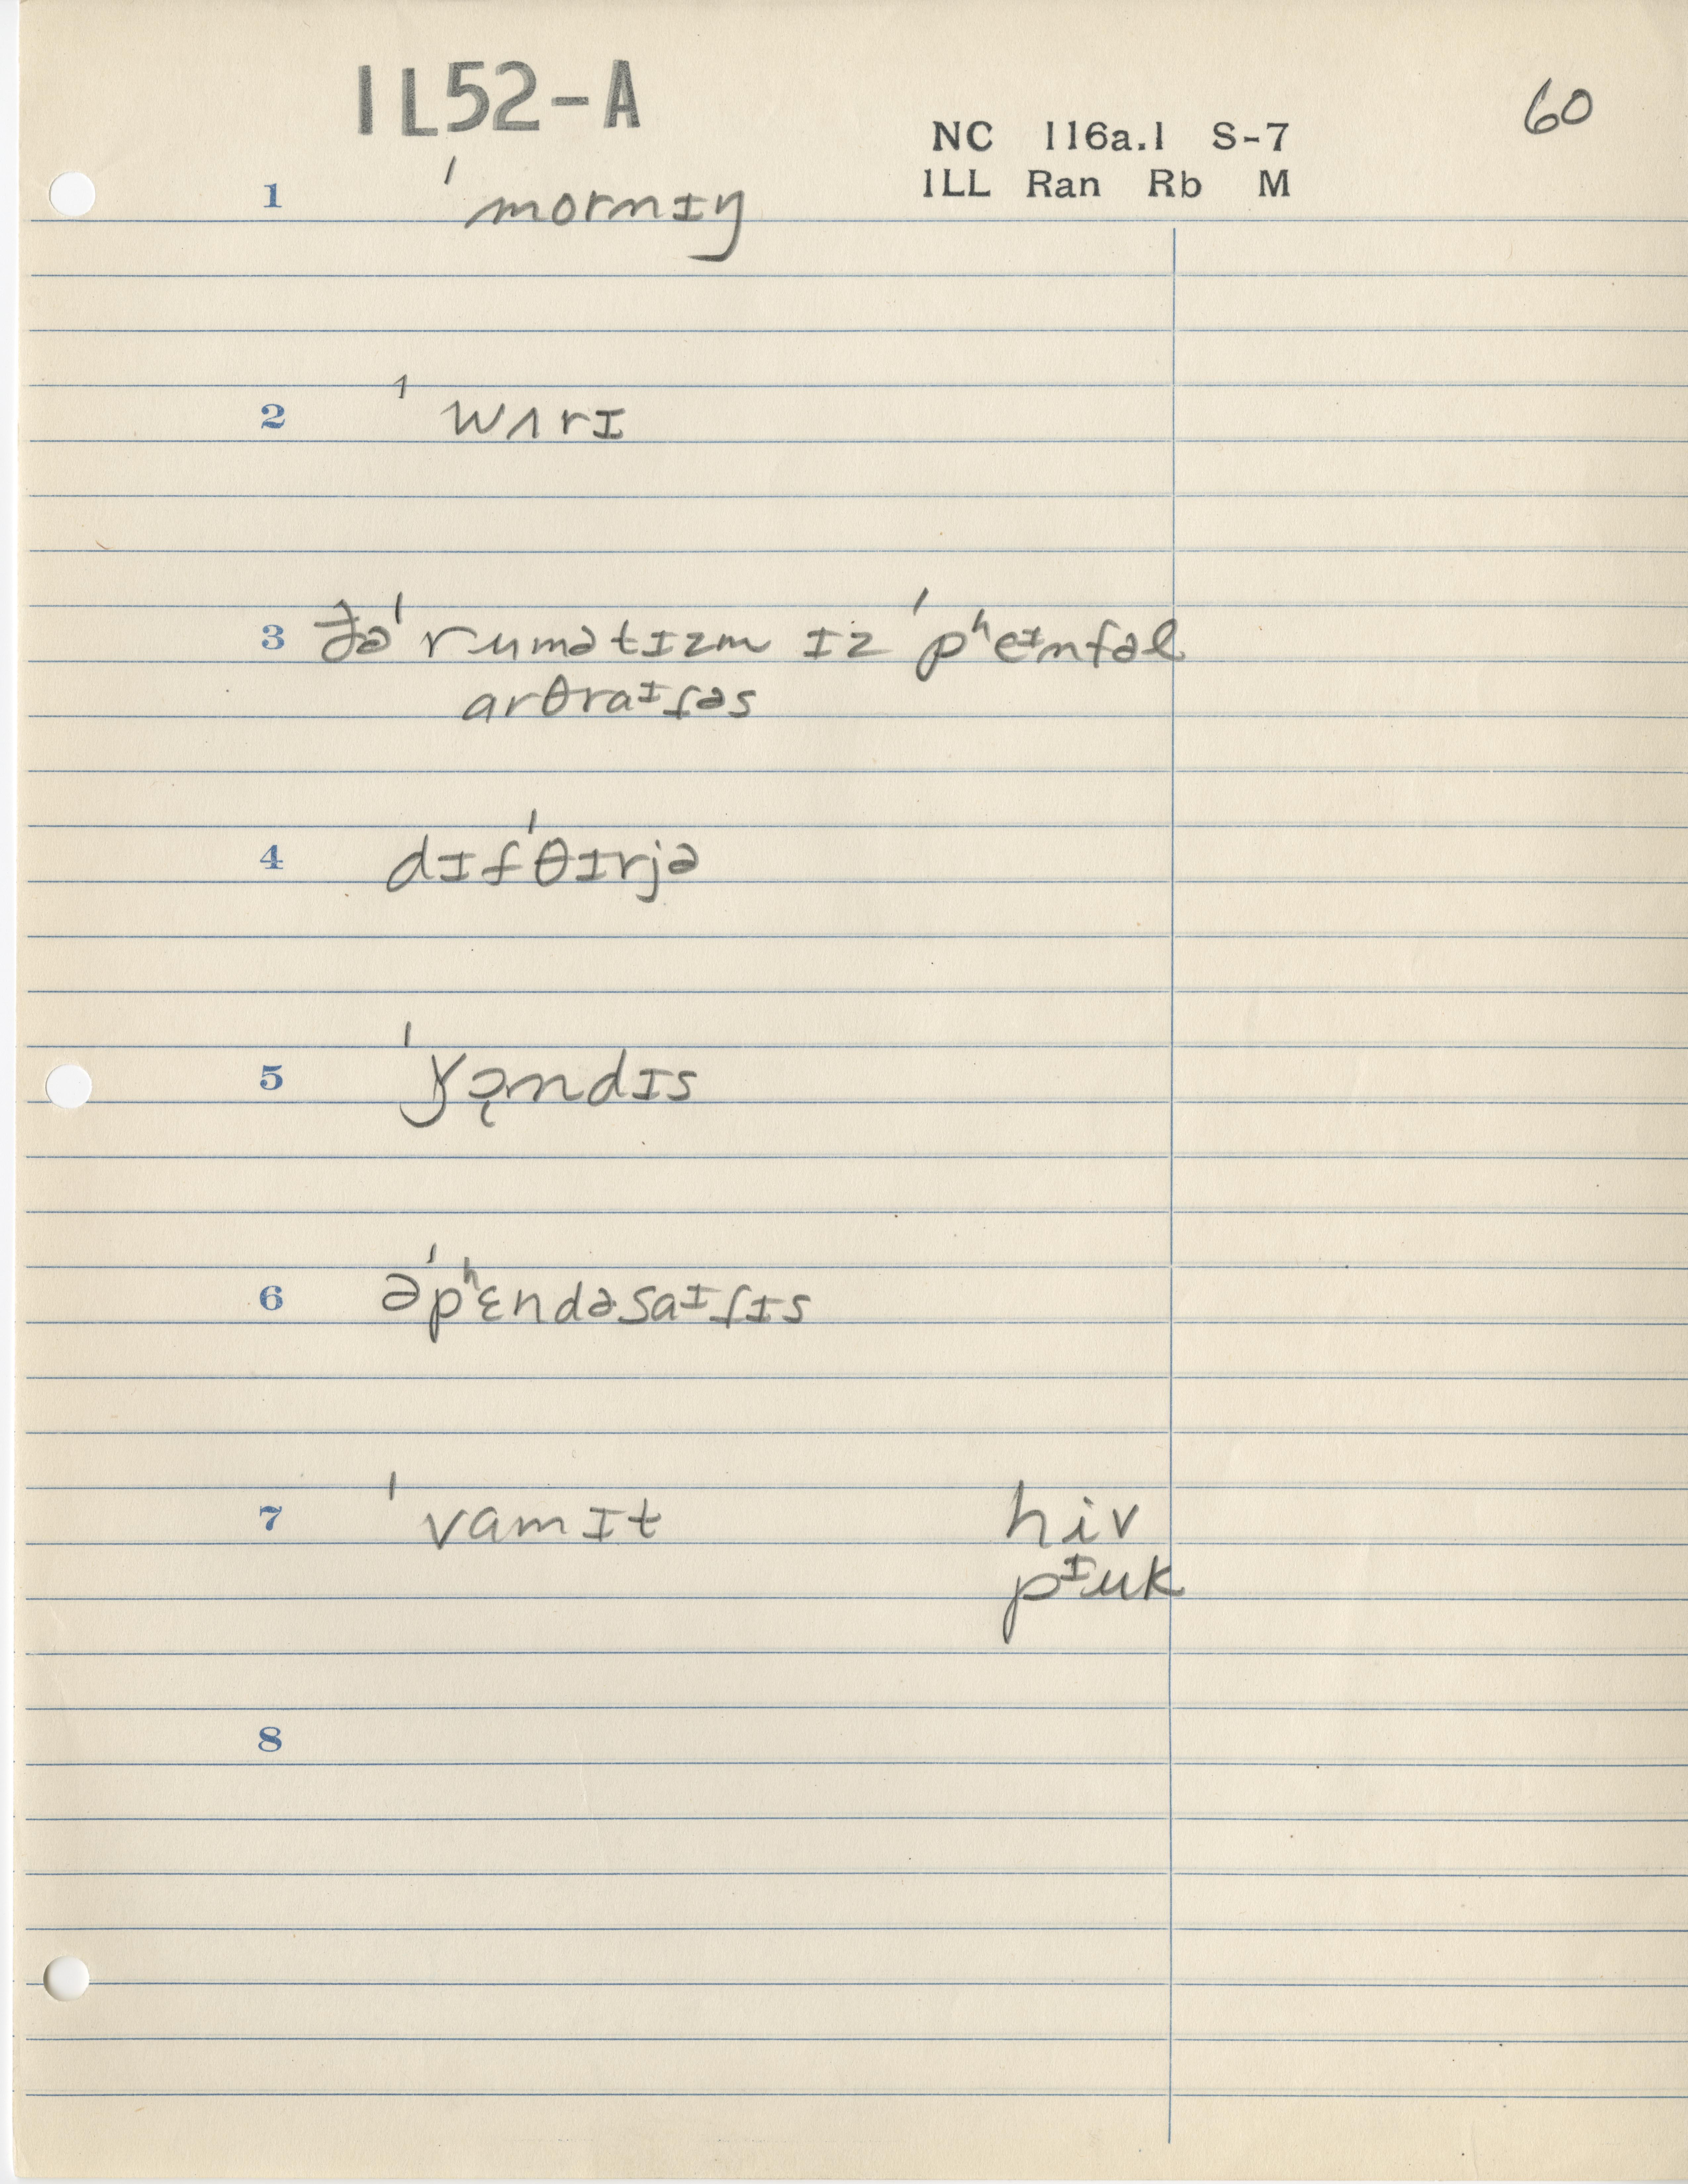 1L52-A
60
NC 116a.1 S-7
ILL Ran Rb M
1 ˈmornɪŋ
2 ˈwʌrɪ
3 ðəˈrumətɪzm ɪz ˈpʰeᶦnfəl
arθraᶦɾəs
4 dɪfˈθɪrjə
5 ˈɏə̨ndɪs
6 əˈpʰɛndəsaᶦɾɪs
7 ˈvamɪt hiv
pᶦuk
8